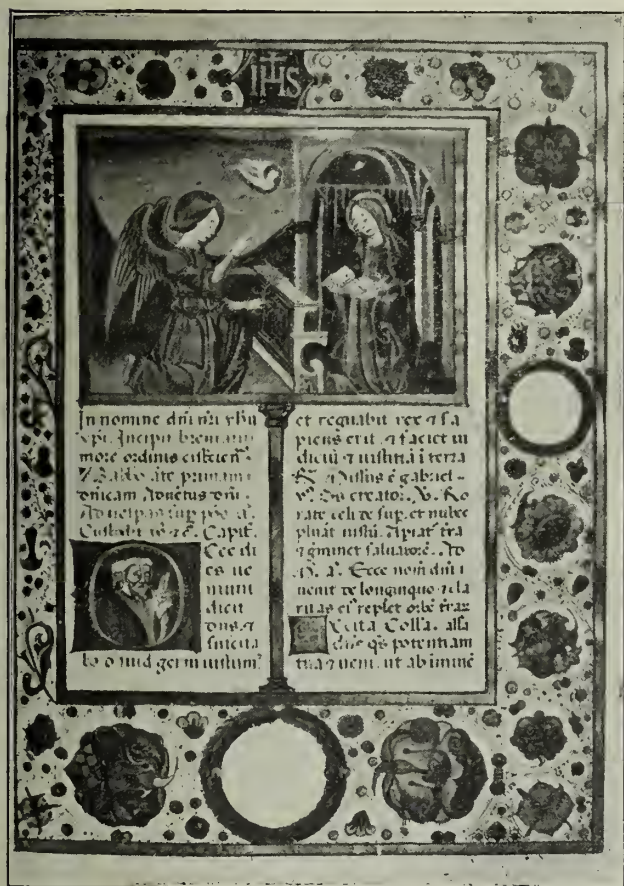 IHS
In nomine dni nri yhu
xpi. Incipit breviariu
more ordinis cisticen.
Sabbo ante primam
onicam Adventus dni.
Ad vesperas sup
Capit.
Ecce di
es ue
niunt
dicit
dns. et
suscita
bo dauid germ iustum
et regnabit rex et sa
piens erit. et faciet iu
diciu et iustitia i terra
Missus e gabriel.
creator. Ro
rate celi de sup. et nubes
pluat iustu. Apiat tra
et gminet saluatore. Ad
a. Ecce nom dni
uenit de longinquo et cla
ritas ei replet orbe traz
xcita Coll'a.
qs potentiam
tua et ueni. ut ab imine